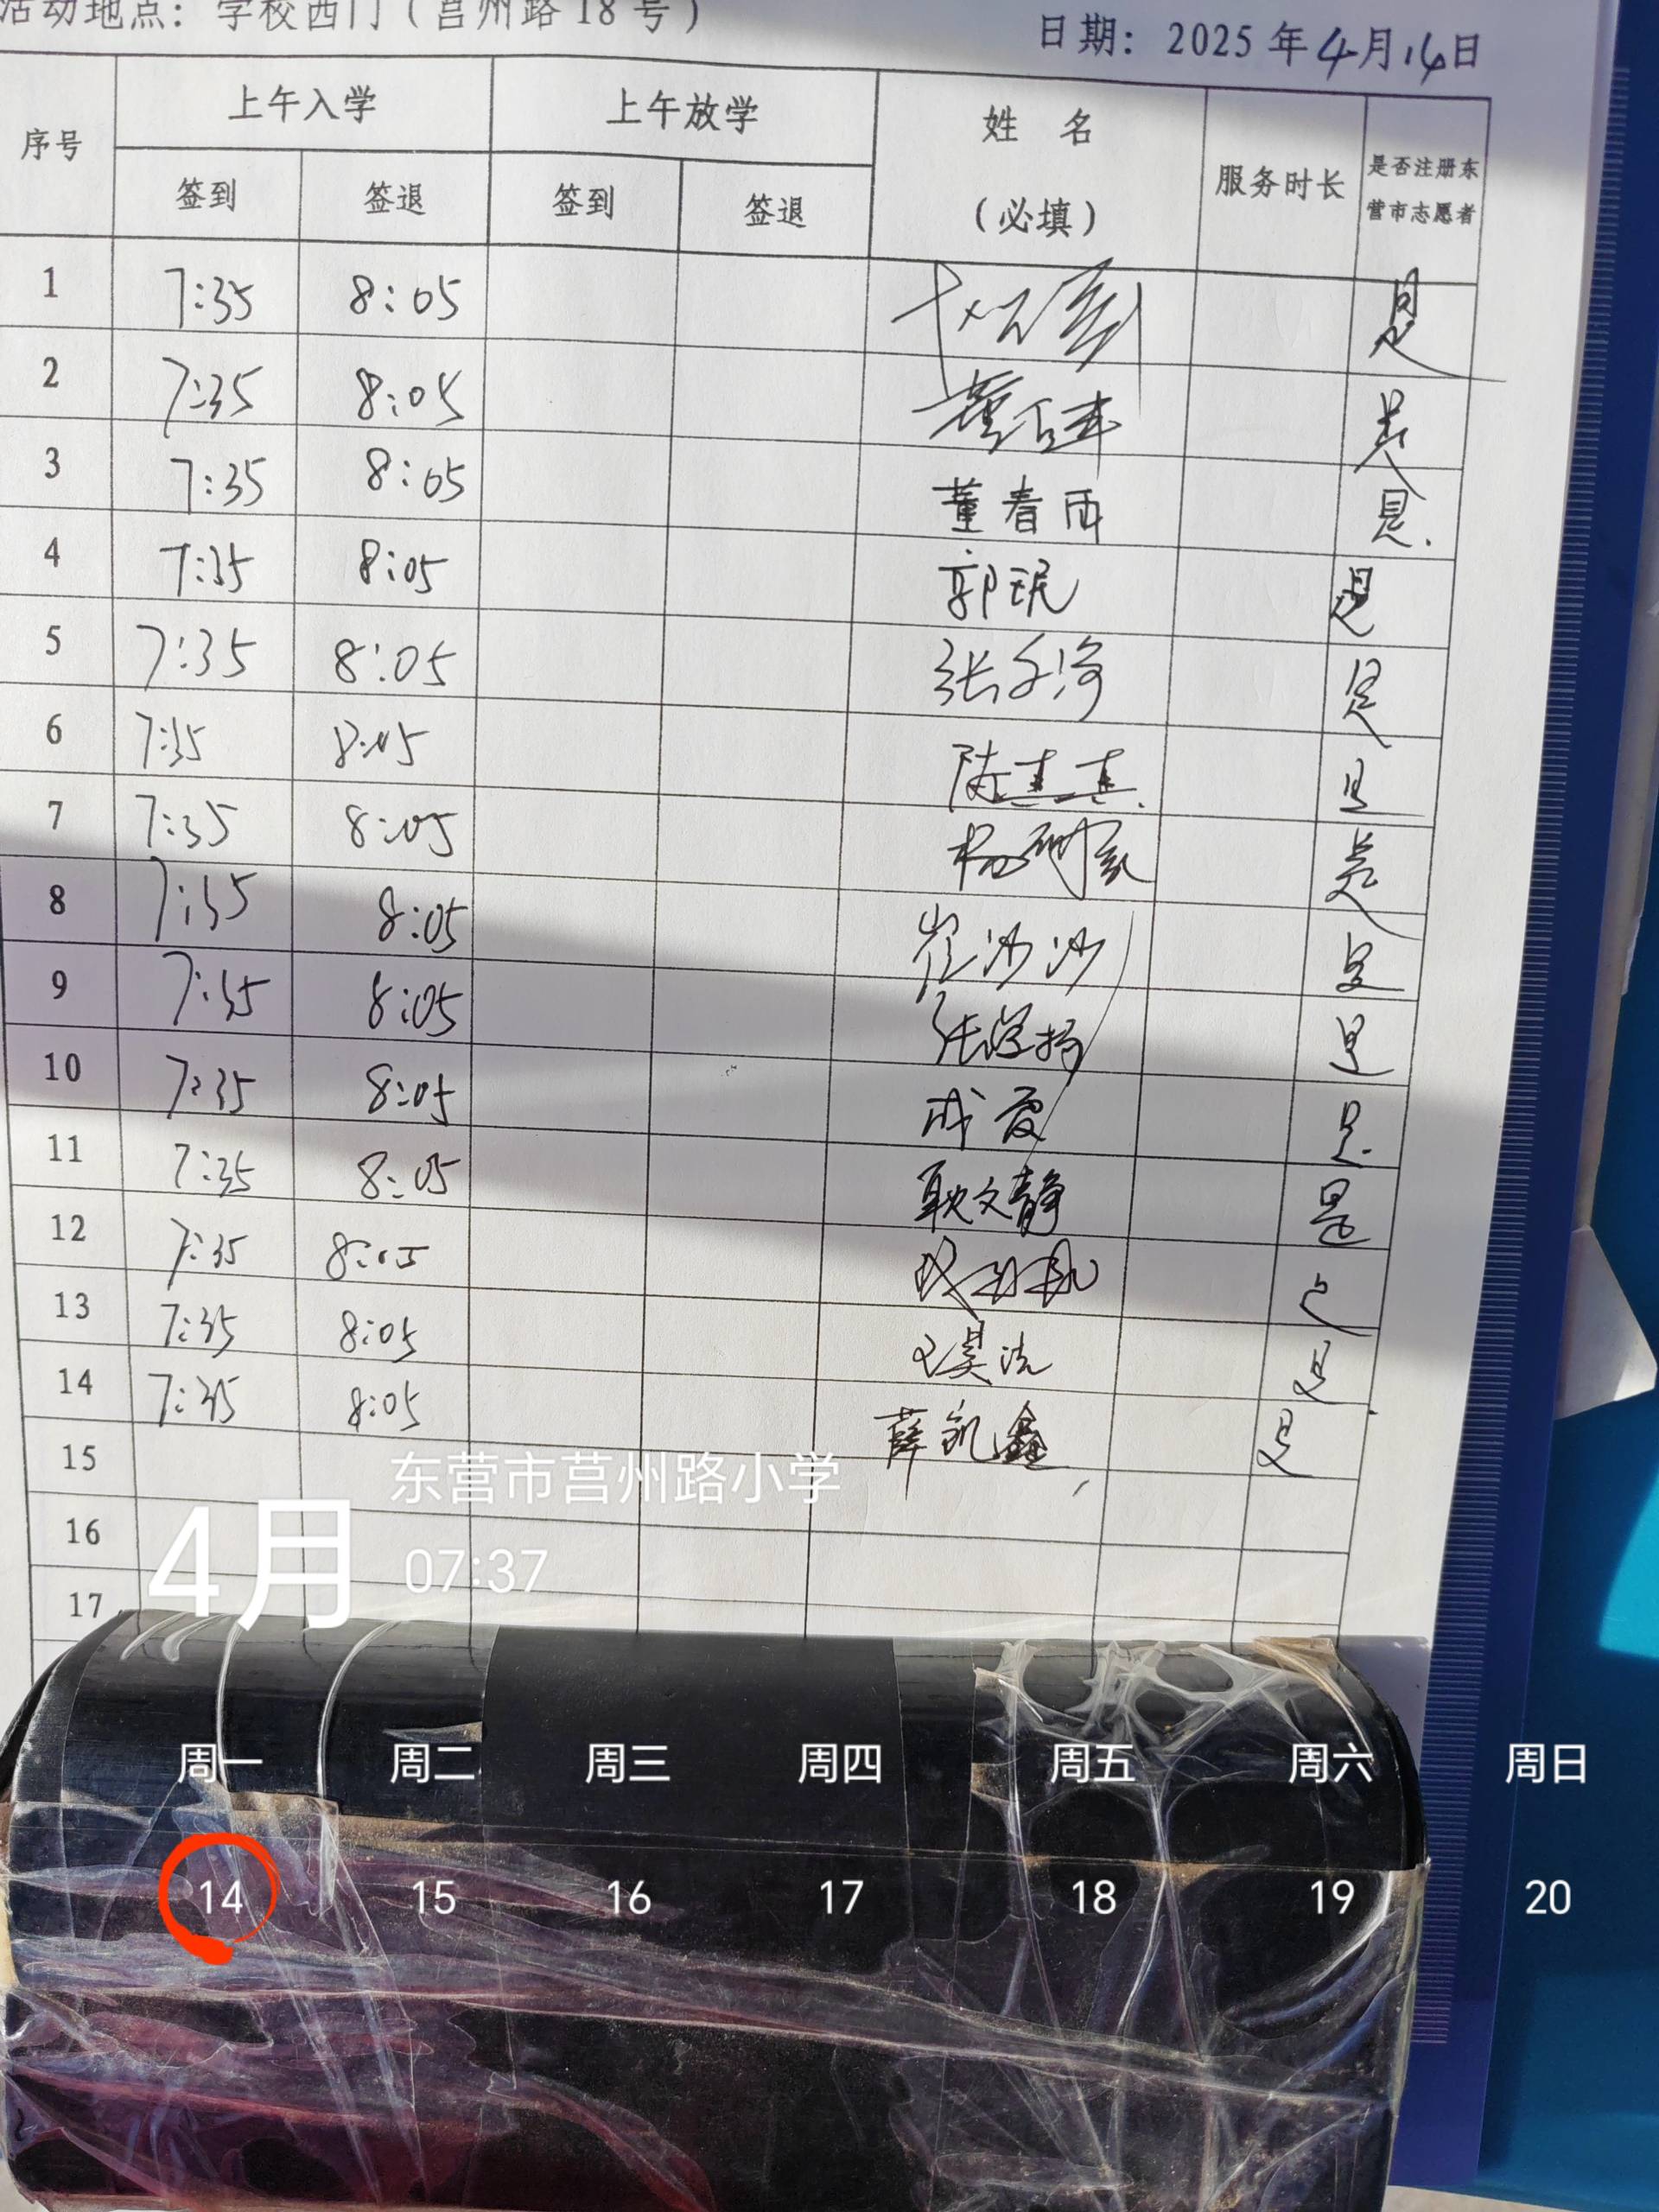 活动地点：学校西门（莒州路18号）
日期：2025年4月14日
序号 上午入学 上午放学 姓 名（必填） 服务时长 是否注册东营市志愿者
签到 签退 签到 签退
1 7:35 8:05 是
2 7:35 8:05 是
3 7:35 8:05 董春雨 是.
4 7:35 8:05 郭珉 是
5 7:35 8:05 是
6 7:35 8:05 陆真真 是
7 7:35 8:05 是
8 7:35 8:05 崔沙沙 是
9 7:35 8:05 是
10 7:35 8:05 成霞 是
11 7:35 8:05 耿文静 是
12 7:35 8:05
13 7:35 8:05 是
14 7:35 8:05 薛凯鑫 是
15
16
17
东营市莒州路小学
4月 07:37
周一 周二 周三 周四 周五 周六 周日
14 15 16 17 18 19 20